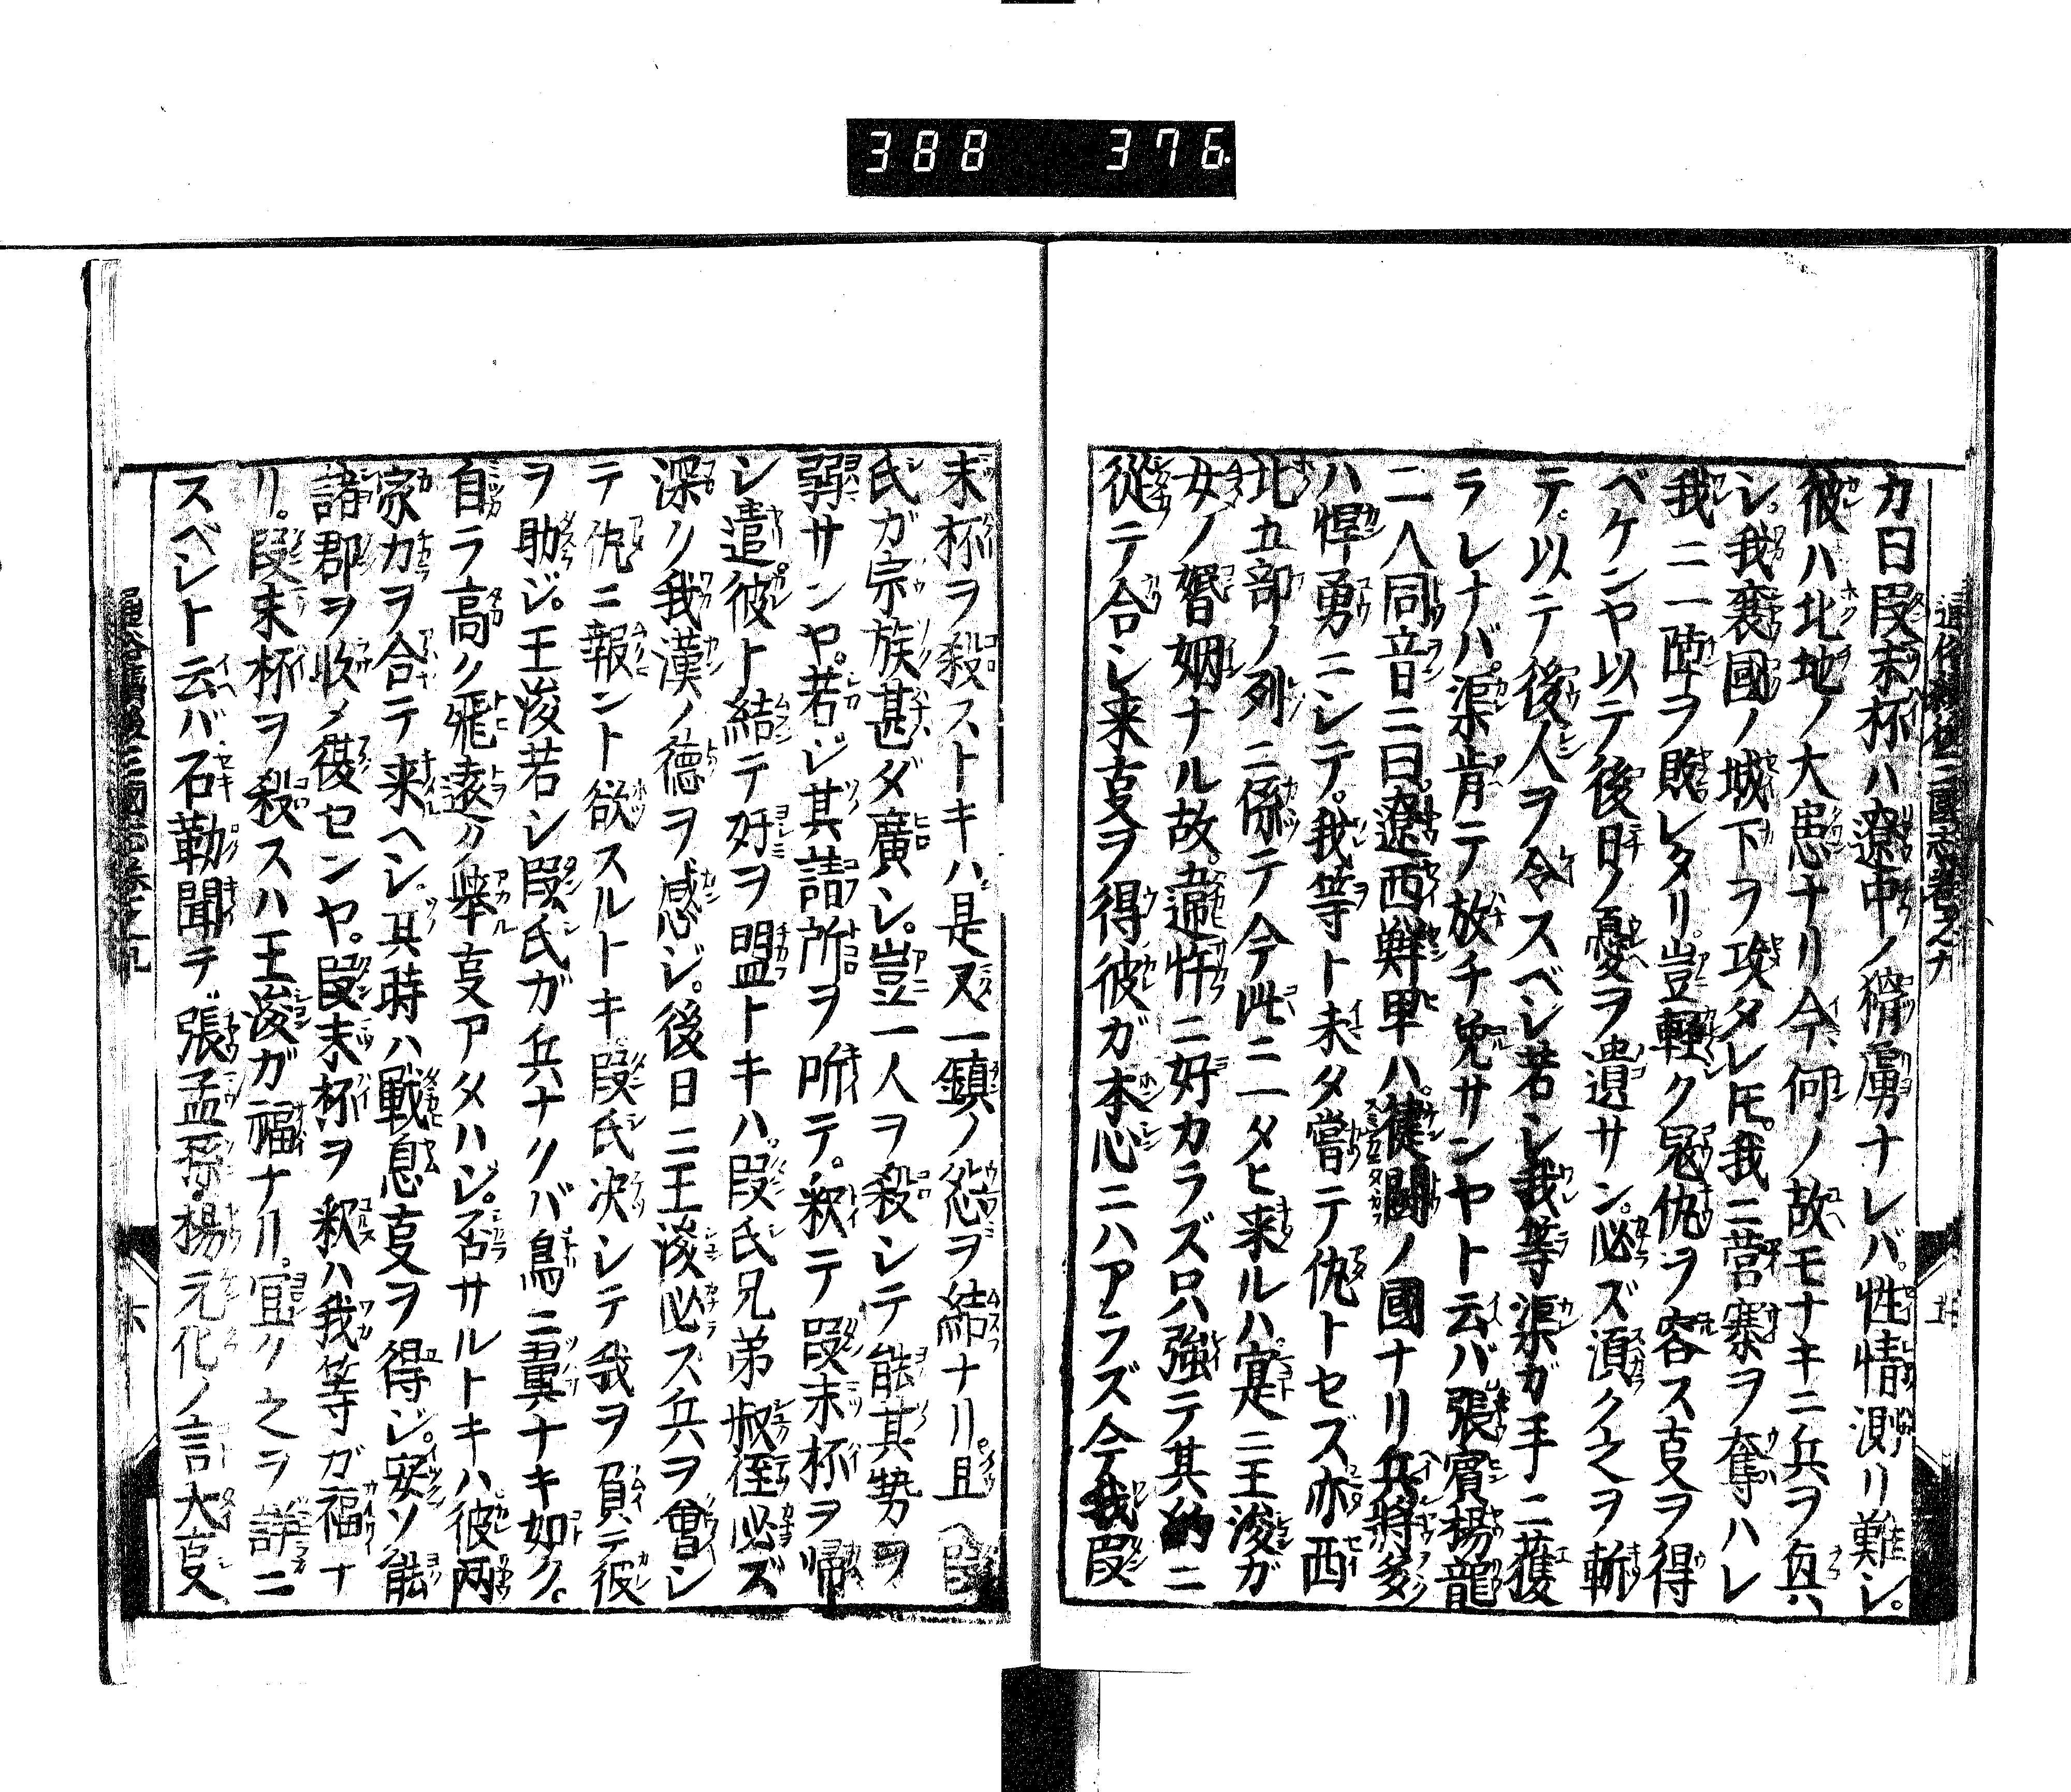 388 376
カ曰段末杯ハ遼中ノ猾虜ナレバ。性情測リ難シ。
彼ハ北地ノ大患ナリ今何ノ故モナキニ兵ヲ興ハ
シ。我襄國ノ城下ヲ攻タレ𪜈。我ニ營寨ヲ奪ハレ
我ニ一陣ヲ敗レタリ。豈輕ク冦仇ヲ容ス㕝ヲ得
ベケンヤ以テ後日ノ憂ヲ遺サン。必ズ湏ク之ヲ斬
テ。以テ後人ヲ令スベシ若シ我等渠ガ手ニ獲
ラレナバ。渠肯テ放チ免サンヤト云バ張賓楊龍
二人同音ニ曰。遼西鮮卑ハ。健鬪ノ國ナリ兵將多
ハ悍勇ニシテ。我等ト未タ嘗テ仇トセズ亦西
北五部ノ列ニ係テ今此ニ一タヒ来ルハ。寔ニ王浚ガ
女ノ婚姻ナル故。違忤ニ好カラズ只強テ其約ニ
從テ合シ来㕝ヲ得彼ガ本心ニハアラズ今我段
末杯ヲ殺ストキハ是又一鎮ノ怨ヲ結ナリ。且段
氏ガ宗族甚ダ廣シ。豈一人ヲ殺シテ能其勢ヲ
弱サンヤ。若ジ其請所ヲ听テ。釈テ段末杯ヲ帰
シ遣。彼ト結テ好ヲ盟トキハ。段氏兄弟叔侄必ズ
深ク我漢ノ德ヲ感ジ。後日ニ王浚必ズ兵ヲ會シ
テ仇ニ報ント欲スルトキ。段氏决シテ我ヲ負テ彼
ヲ助ジ。王浚若シ段氏ガ兵ナクバ鳥ニ翼ナキ如ク。
自ラ高ク飛遠ク舉㕝アタハジ。否サルトキハ。彼两
家カヲ合テ来ヘシ。其時ハ戰息㕝ヲ得ジ。安ソ能
諸郡ヲ收メ襲センヤ。段末杯ヲ釈ハ我等ガ福ナ
リ。段末杯ヲ殺スハ王浚ガ福ナリ。宜ク之ヲ詳ニ
スベシト云バ石勒聞テ。張孟孫楊元化ノ言大㕝